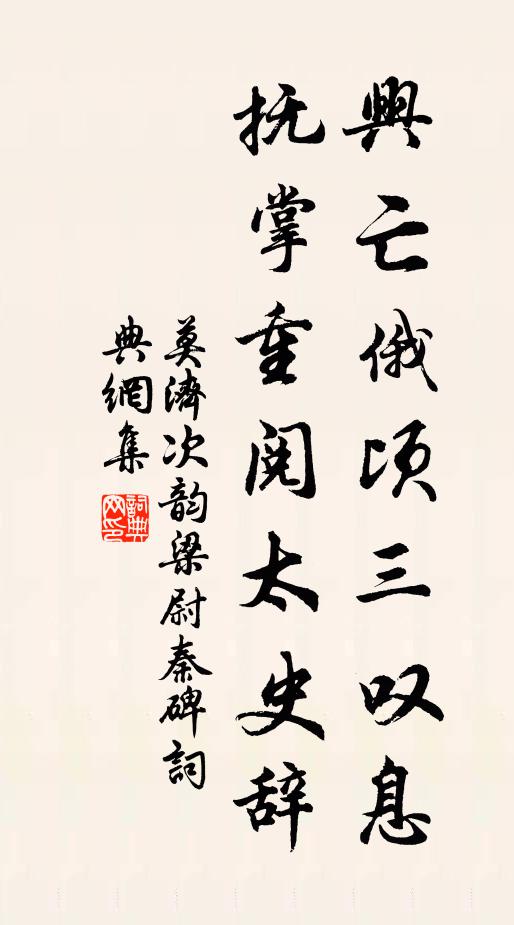 興亡俄頃三叹息
抚掌重阅太史辞
莫濟次韵梁尉秦碑詞
典網集
詞典网印